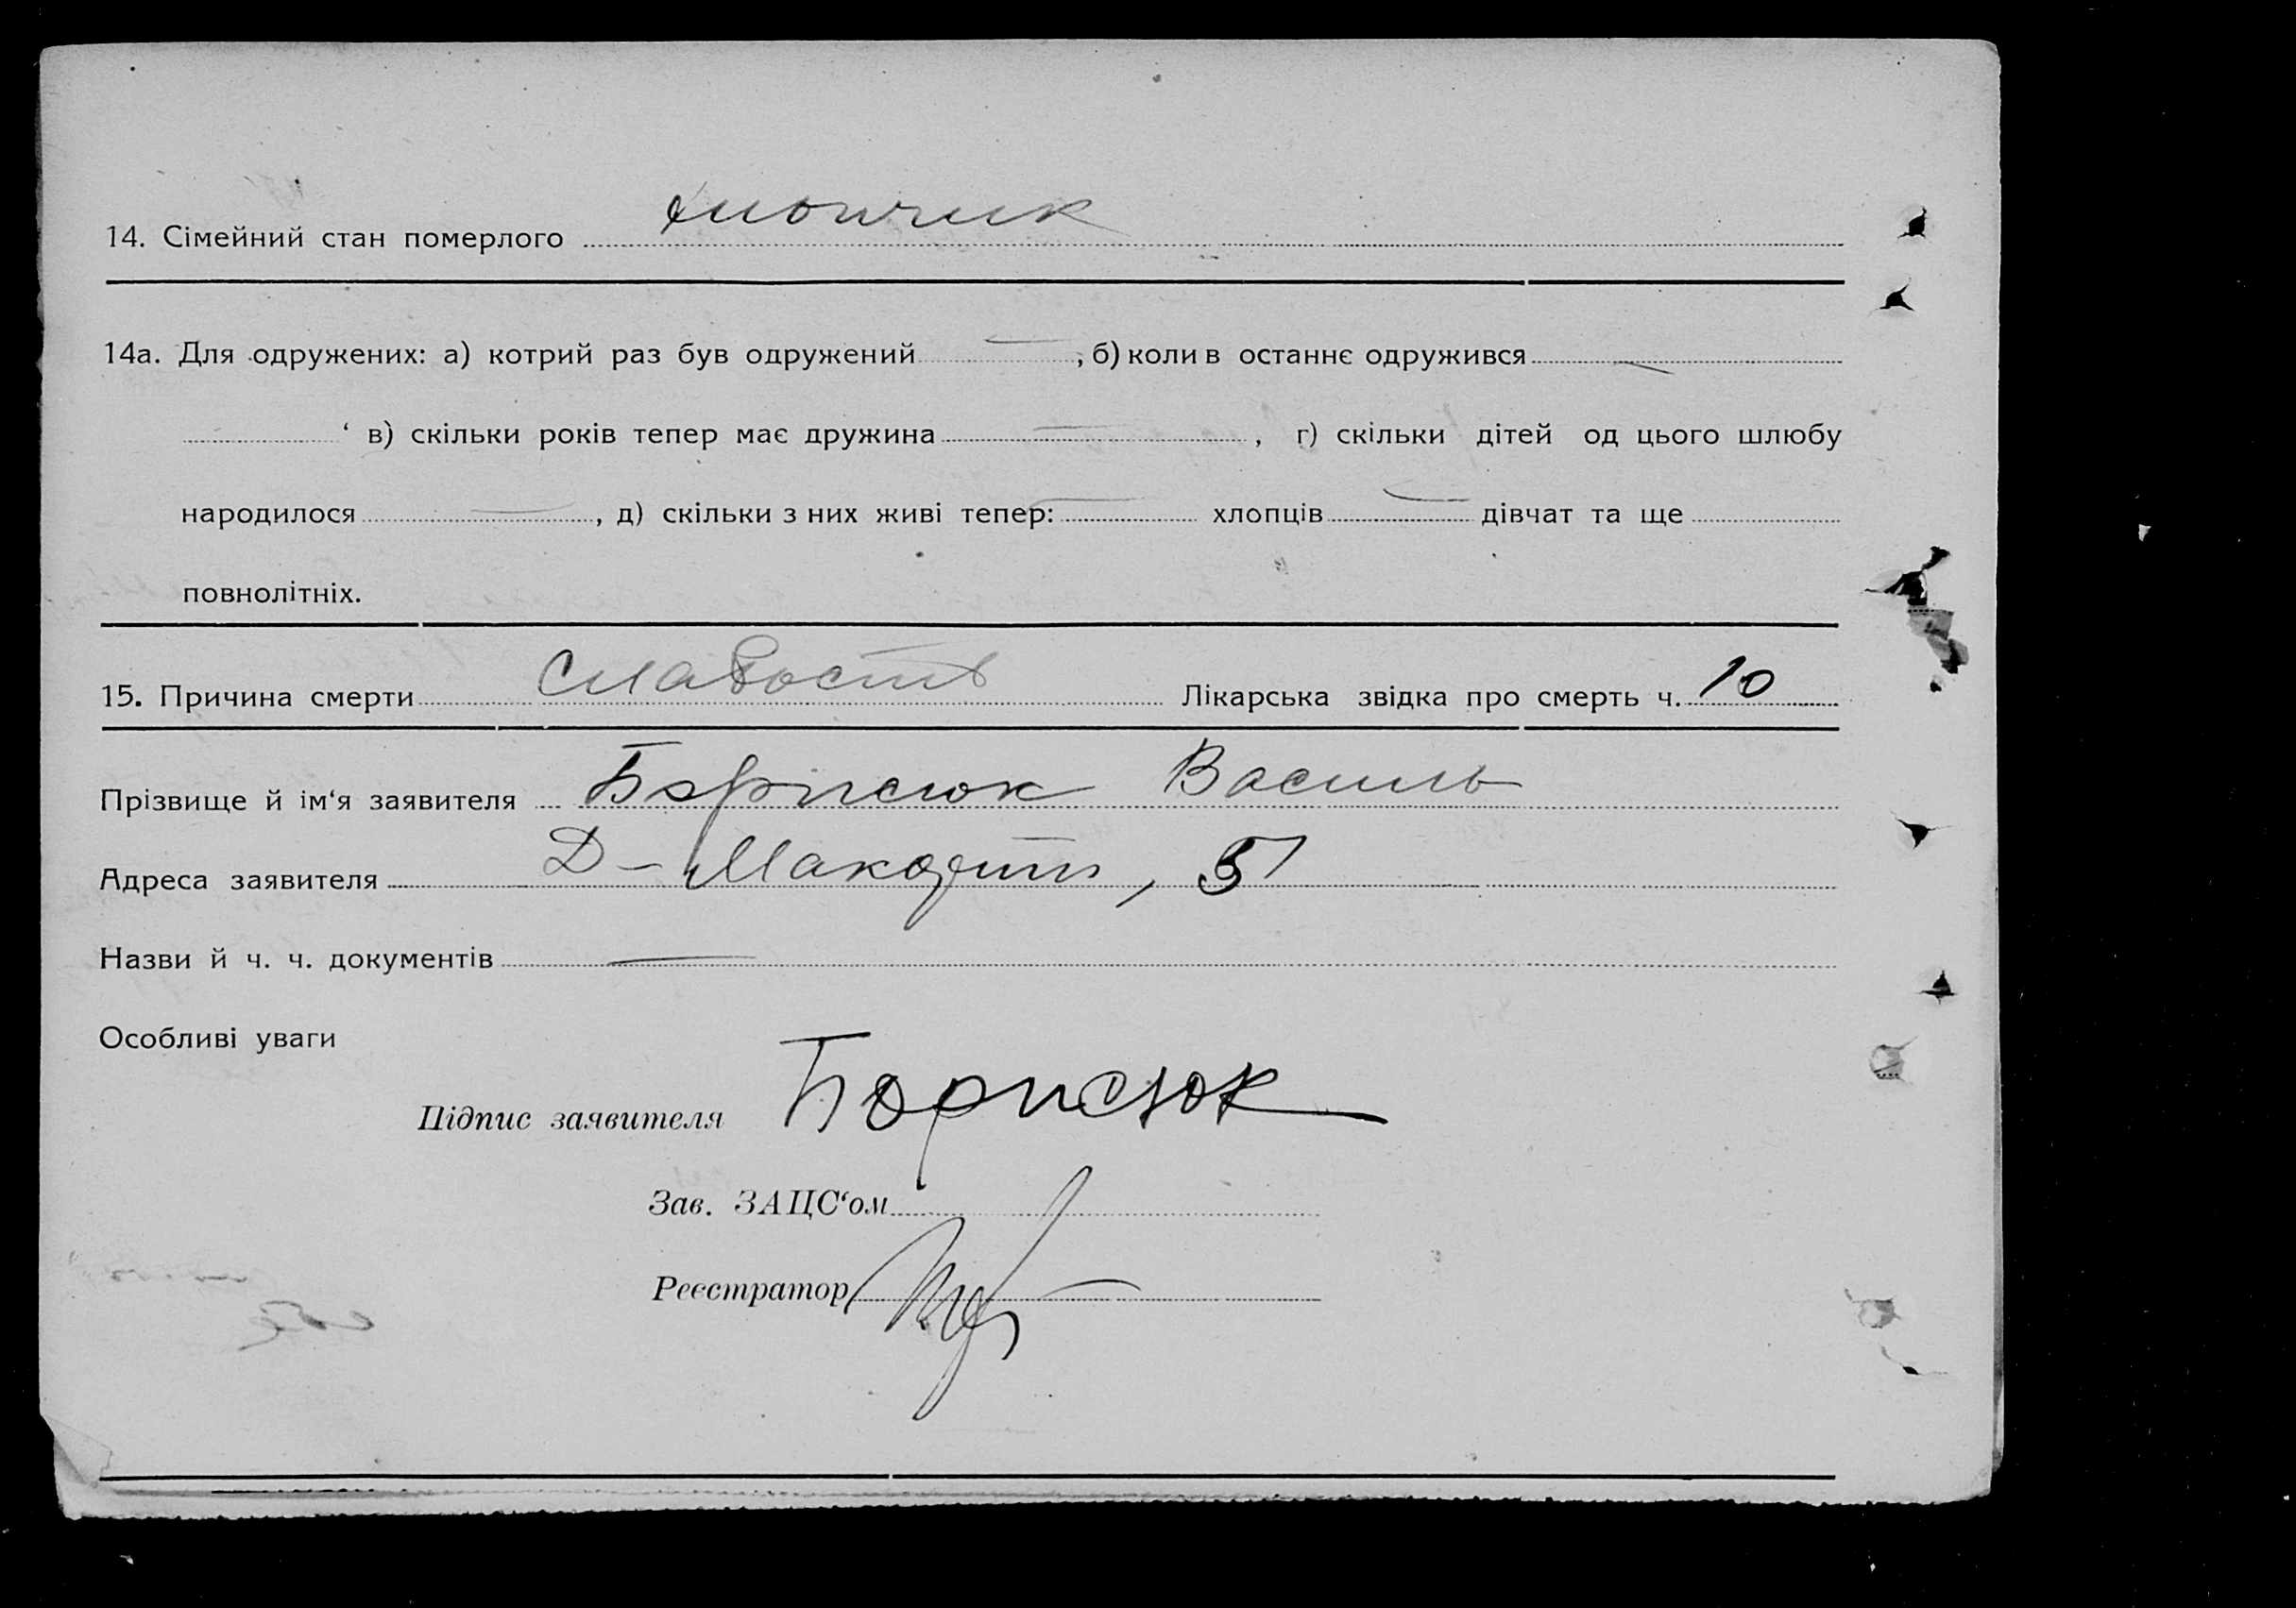 14. Сімейний стан померлого хлопчик
14а. Для одружених: а) котрий раз був одружений —, б) коли в останнє одружився —
‘ в) скільки років тепер має дружина —, г) скільки дітей од цього шлюбу
народилося —, д) скільки з них живі тепер: — хлопців — дівчат та ще
повнолітніх.
15. Причина смерти слабость Лікарська звідка про смерть ч. 10
Прізвище й ім‘я заявителя Борисюк Василь
Адреса заявителя Д-, 51
Назви й ч. ч. документів —
Особливі уваги
Підпис заявителя Борисюк
Зав. ЗАЦС‘ом
Реєстратор